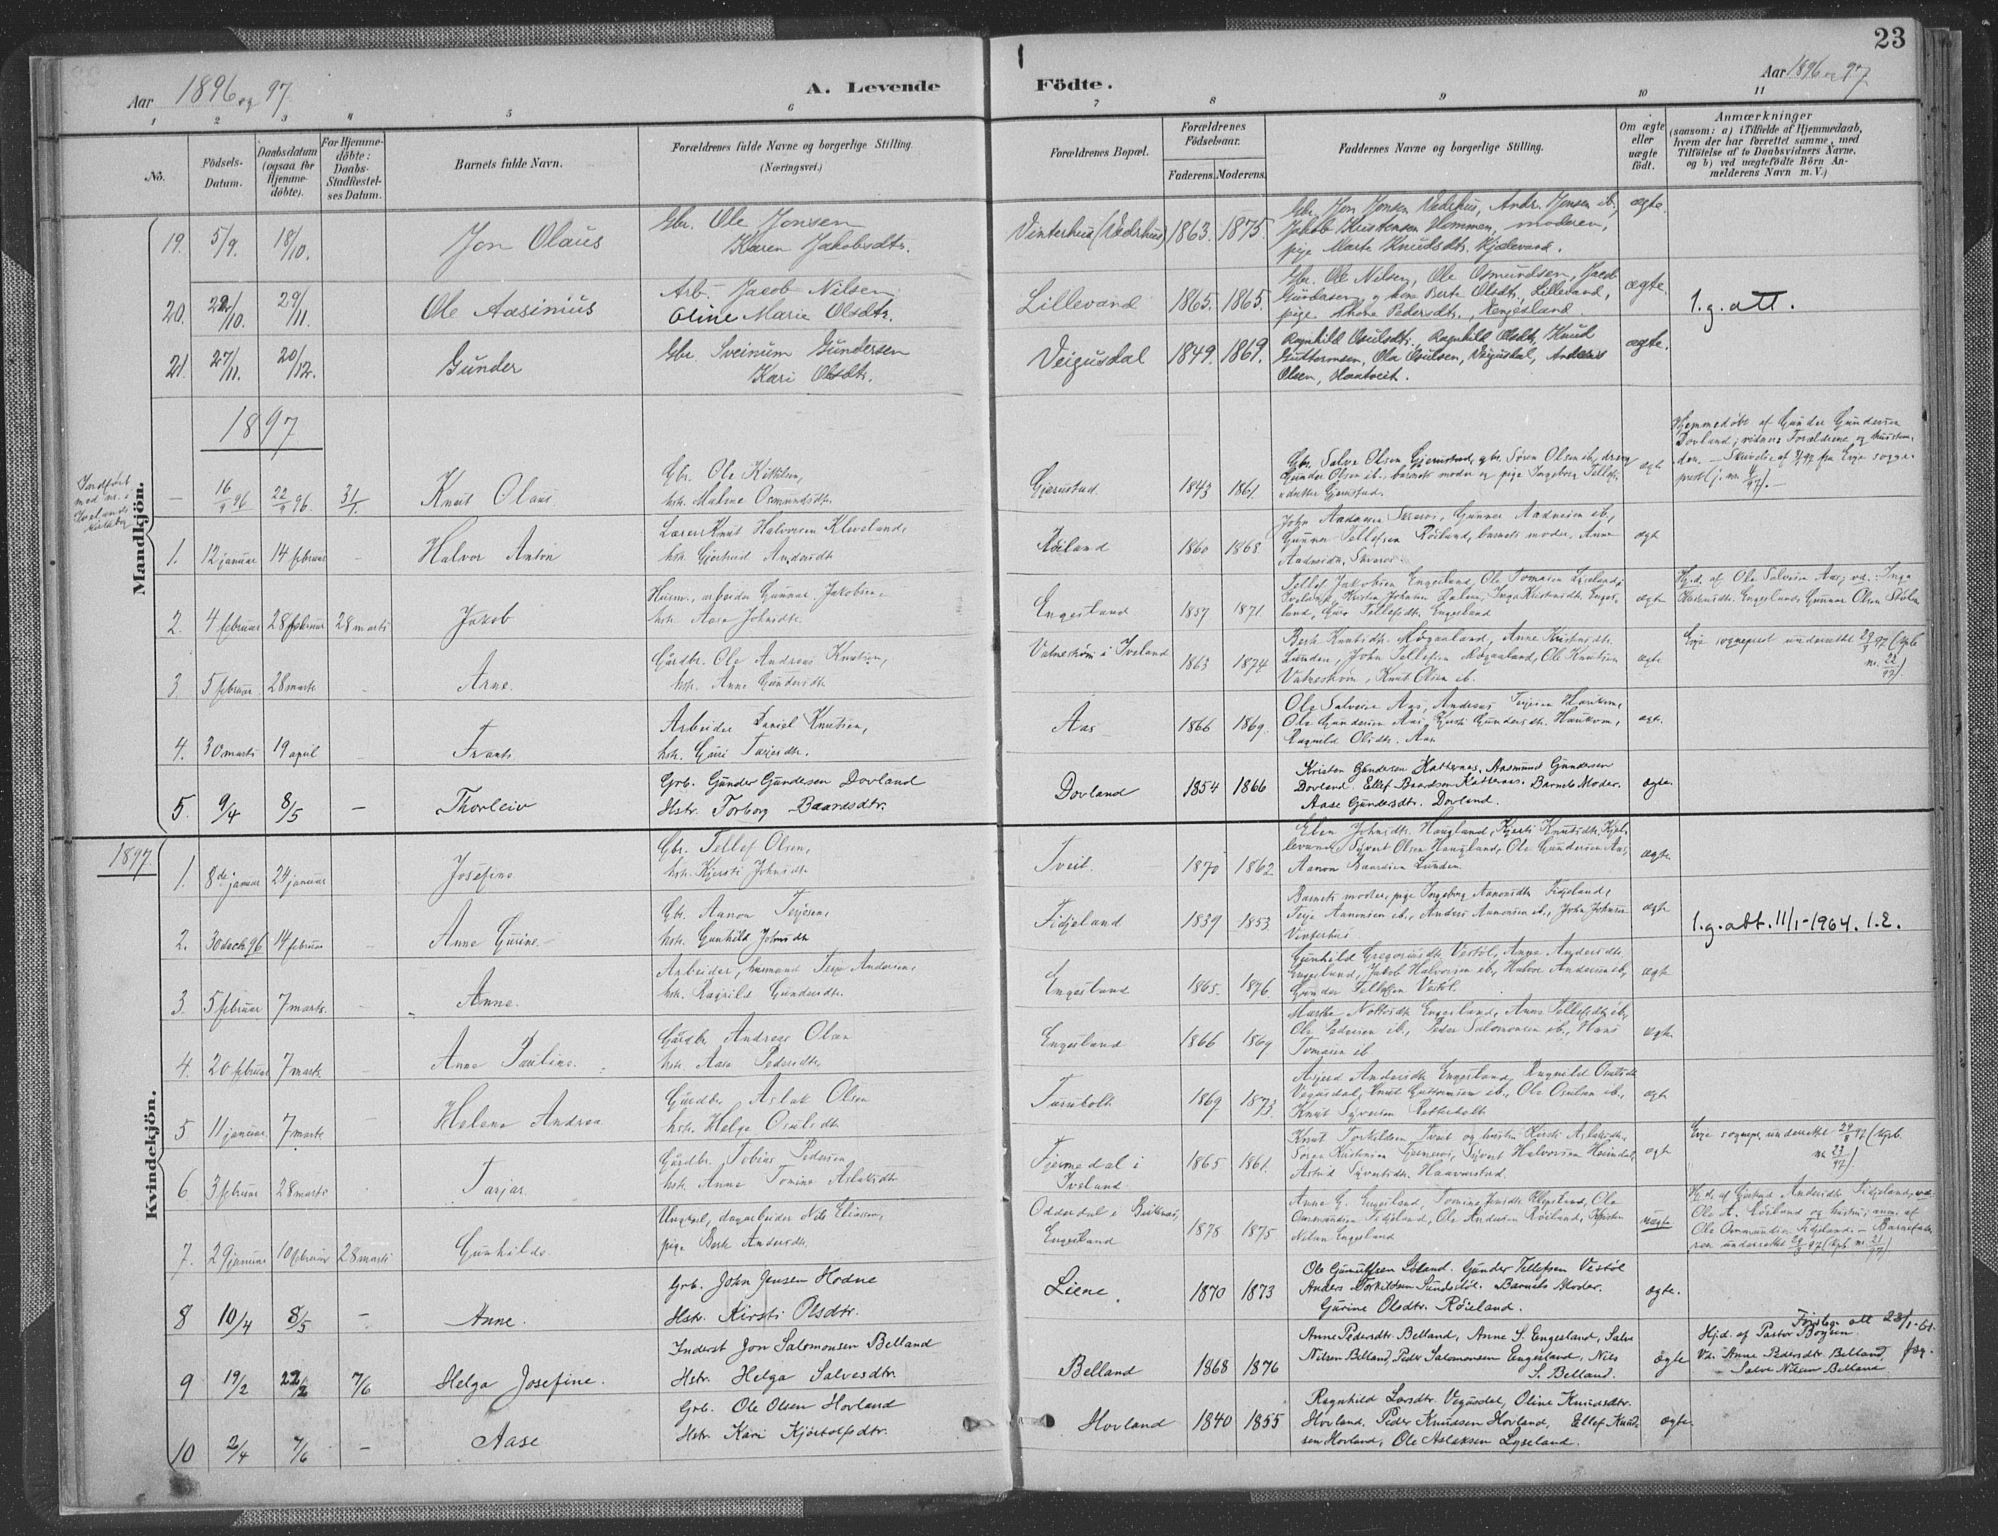 23
Aar 1896 og 97.
A. Levende
Födte.
Aar 1896 og 97
1 2 3 4 5 6 7 8 9 10 11
No.
Födsels-Datum.
Daabsdatum (ogsaa for Hjemme-döbte).
For Hjemme-döbte: Daabs-Stadfæstel-ses Datum.
Barnets fulde Navn.
Forældrenes fulde Navne og borgerlige Stilling. (Næringsvei.)
Forældrenes Bopæl.
Forældrenes Födselsaar.
Faderens. Moderens.
Faddernes Navne og borgerlige Stilling.
Om ægte eller uægte födt.
Anmærkninger
(saasom: a) i Tilfælde af Hjemmedaab, hvem der har forrettet samme, med Tilföielse af to Daabsvidners Navne, og b) ved uægtefödte Börn An-melderens Navn m. V.)
Mandkjön.
19. 5/9. 18/10. Jon Olaus
Gbr. Ole Jonsen
Karen Jakobsdtr.
Vinterhus (Vedrhus) 1863. 1875.
Gbr. Jon Jonsen Vedrhus, Andr. Jonsen ib.,
Jakob Kristensen Hommen, moderen,
pige Marte Knudsdtr. Kjælevand.
ægte.
20. 22/10. 29/11. Ole Aasinius
Arb. Jacob Nilsen
Oline Marie Olsdtr.
Lillevand 1865. 1865.
Gbr. Ole Nilsen, Ole Osmundsen, Jacob
Gundersen og kone Berte Olsdtr., Lillevand,
pige Thone Pedersdtr., Engesland.
ægte.
1.g. att.
21. 27/11. 20/12. Gunder
Gbr. Sveinum Gundersen
Kari Olsdtr.
Veigusdal 1849. 1869.
Ragnhild Osulsdtr., Ragnhild Olsdtr, Knud
Guttormsen, Ole Osulsen, Veigusdal, Anders
Olsen, Haatveit.
ægte.
1897
Indført
med nr. i
Ivelands
kirkebog
— 16/9 96 22/9 96. 31/1. Knut Olaus
Gbr. Ole Kittelsen,
hstr. Malene Osmundsdtr.
Gjerustad. 1843 1861.
Gbr. Salve Olsen Gjerustad, gbr. Søren Olsen ib., dreng
Gunder Olsen ib., barnets moder og pige Ingeborg Tellefs-
datter Gjerustad.
ægt
Hjemmedøbt af Gunder Gundersen
Dovland; vidner: Forældrene og
1. 12 januar 14 februar — Halvor Anton
Lærer Knut Halvorsen Kleveland,
hstr. Gjertrud Andersdtr
Røiland 1860 1868.
John Aadnesen Skreros, Gunnar Aadnesen ib.,
Gunnar Tellefsen Røiland, barnets moder, Anne
Aadnesdtr. Skreros.
ægt
2. 4 februar 28 februar 28 marts Jakob
Husm., arbeider Gunnar Jakobsen,
hstr. Aase Johnsdtr.
Engesland 1857 1871.
Tellef Jakobsen Engesland, Ole Tomasen Lyseland,
ægte
Hj.d. af Ole Salvesen Aas; vd.: Inga
Kristensdtr. Engesland, Gunnar Olsen
3 5 februar 28 marts — Arne.
Gårdbr. Ole Andreas Knutsen,
hstr. Anne Gundersdtr
Vatnestrøm i Iveland 1863 1874
Berte Knutsdtr. Mogaaland, Anne Kristensdtr.
Lunden, John Tellefsen Mogaaland, Ole Knutsen
Vatnestrøm, Knut Olsen ib.
ægte
Evje sogneprest underrettet 29/3 97 (kprb
nr. 22/97).
4. 30 marts 19 april Frants
Arbeider Daniel Knutsen,
hstr. Guri Tarjesdtr.
Aas 1866 1869.
Ole Salvesen Aas, Andreas Terjesen Haukom,
Ole Gundersen Aas, Kirsti Gundersdtr. Haukom,
Ragnild Olsdtr. Aas
ægt.
5. 9/4 8/5 — Thorleiv
Grb. Gunder Gundersen Dovland
Hstr. Torborg Baardsdtr.
Dovland 1854 1866
Kristen Gundersen Katternes. Aasmund Gundersen
Dovland. Ellef Baardsen Katternes. Barnets Moder.
Aase Gundersdtr. Dovland.
ægte.
1897.
Kvindekjön.
1. 8de januar 24 januar Josefine
Gbr. Tellef Olsen,
hstr. Kjersti Johnsdtr
Tveit 1870 1862
Elen Johnsdtr. Haugland, Kjersti Knutsdtr. Kjæ-
levand, Syvert Olsen Haugland, Ole Gundersen Aas,
Aanon Baardsen Lunden.
ægte
2. 30 decb. 96 14 februar Anne Gurine
Gbr. Aanon Terjesen,
hstr. Gunhild Johnsdtr
Fidjeland 1839 1853
Barnets moder, pige Ingeborg Aanonsdtr Fidjeland,
Terje Aanonsen ib., Anders Aanonsen ib., John Johnsen
Vinterhus
ægte
1.g. att. 11/1-1964. I.E.
3. 5 februar 7 marts. Anne.
Arbeider, husmand Terje Andersen,
hstr. Ragnild Gundersdtr.
Engesland 1865. 1876.
Gunhild Gregoriusdtr Vestøl, Anne Andersdtr
Engesland, Jakob Halvorsen ib., Halvor Andersen ib.,
Gunder Tellefsen Vestøl.
ægte
4. 20 februar 7 marts Anne Pauline.
Gårdbr Andreas Olsen
hstr. Aase Pedersdtr.
Engesland 1866 1869
Marthe Engesland, Anne Tellefsdtr ib.,
Ole Pedersen ib., Peder Salomonsen ib., Hans
Tomasen ib.
ægte
5 11 januar 7 marts — Helene Andrea
Gårdbr Aslak Olsen
hstr. Helge Osulsdtr
1869 1873.
Andersdtr Engesland, Ragnild Osulsdtr
Vegusdal, Knut Guttormsen ib., Ole Osulsen ib.,
Knut Syversen
ægt
6 3 februar 28 marts Tarjer.
Gårdbr. Tobias Pedersen,
hstr. Anne Tomine Aslaksdtr
Fjermedal i
Iveland 1865 1861.
Knut Torkildsen Tveit og hustru Kirsti Aslaksdtr.,
Astrid Syvertsdtr. Haaverstad.
ægt
Evje sognepr. underrettet 29/3 97 (kprb.
nr. 23/97).
7. 29 januar 10 februar 28 marts Gunhilde
Ungkarl, dagarbeider Nils Eliasen,
pige Berte Andersdtr.
Odderdal i
Engesland 1878 1875
Anne G. Engesland, Tomine Jensdtr. Klepsland, Ole
Osmundsen Fidjeland, Ole Andersen Røiland, Kristen
Nilsen Engesland
uægte
Hj.d. af Gjertrud Andersdtr Fidjeland; vd:
Ole A. Røiland og hustru; anm. af
Ole Osmundsen Fidjeland. — Barnefade-
ren underrettet 29/3 97 (kprb. nr. 21/97).
8 10/4 8/5 — Anne.
Grb. John Jensen Hodne
Hstr. Kirsti Olsdtr.
Liene. 1870 1873
Ole Gunulfsen Løland. Gunder Tellefsen Vestøl
Anders Torkildsen Sundstøl. Barnets Moder.
Gurine Olsdtr. Røieland.
ægte.
9 19/2 22/2 7/6 Helga Josefine.
Inderst Jon Salomonsen Belland
Hstr. Helga Salvesdtr.
Belland 1868 1876
Anne Pedersdtr Belland, Anne S. Engesland, Salve
Nilsen Belland, Peder Salomonsen Engesland, Nils
S. Belland.
ægte
att 23/1-61.
Hj.d. af Pastor Boysen.
Vd. Anne Pedersdtr Belland,
Salve Nilsen Belland
10 2/4 7/6 — Aase
Grb. Ole Olsen Hovland
Hstr. Kari Kjøstolfsdtr.
Hovland 1840 1855
Ragnhild Larsdtr. Vegusdal, Oline Knudsdtr.
Hovland, Peder Knudsen Hovland, Ellef Knud-
sen Hovland, Ole Aslaksen Lyseland.
ægte.